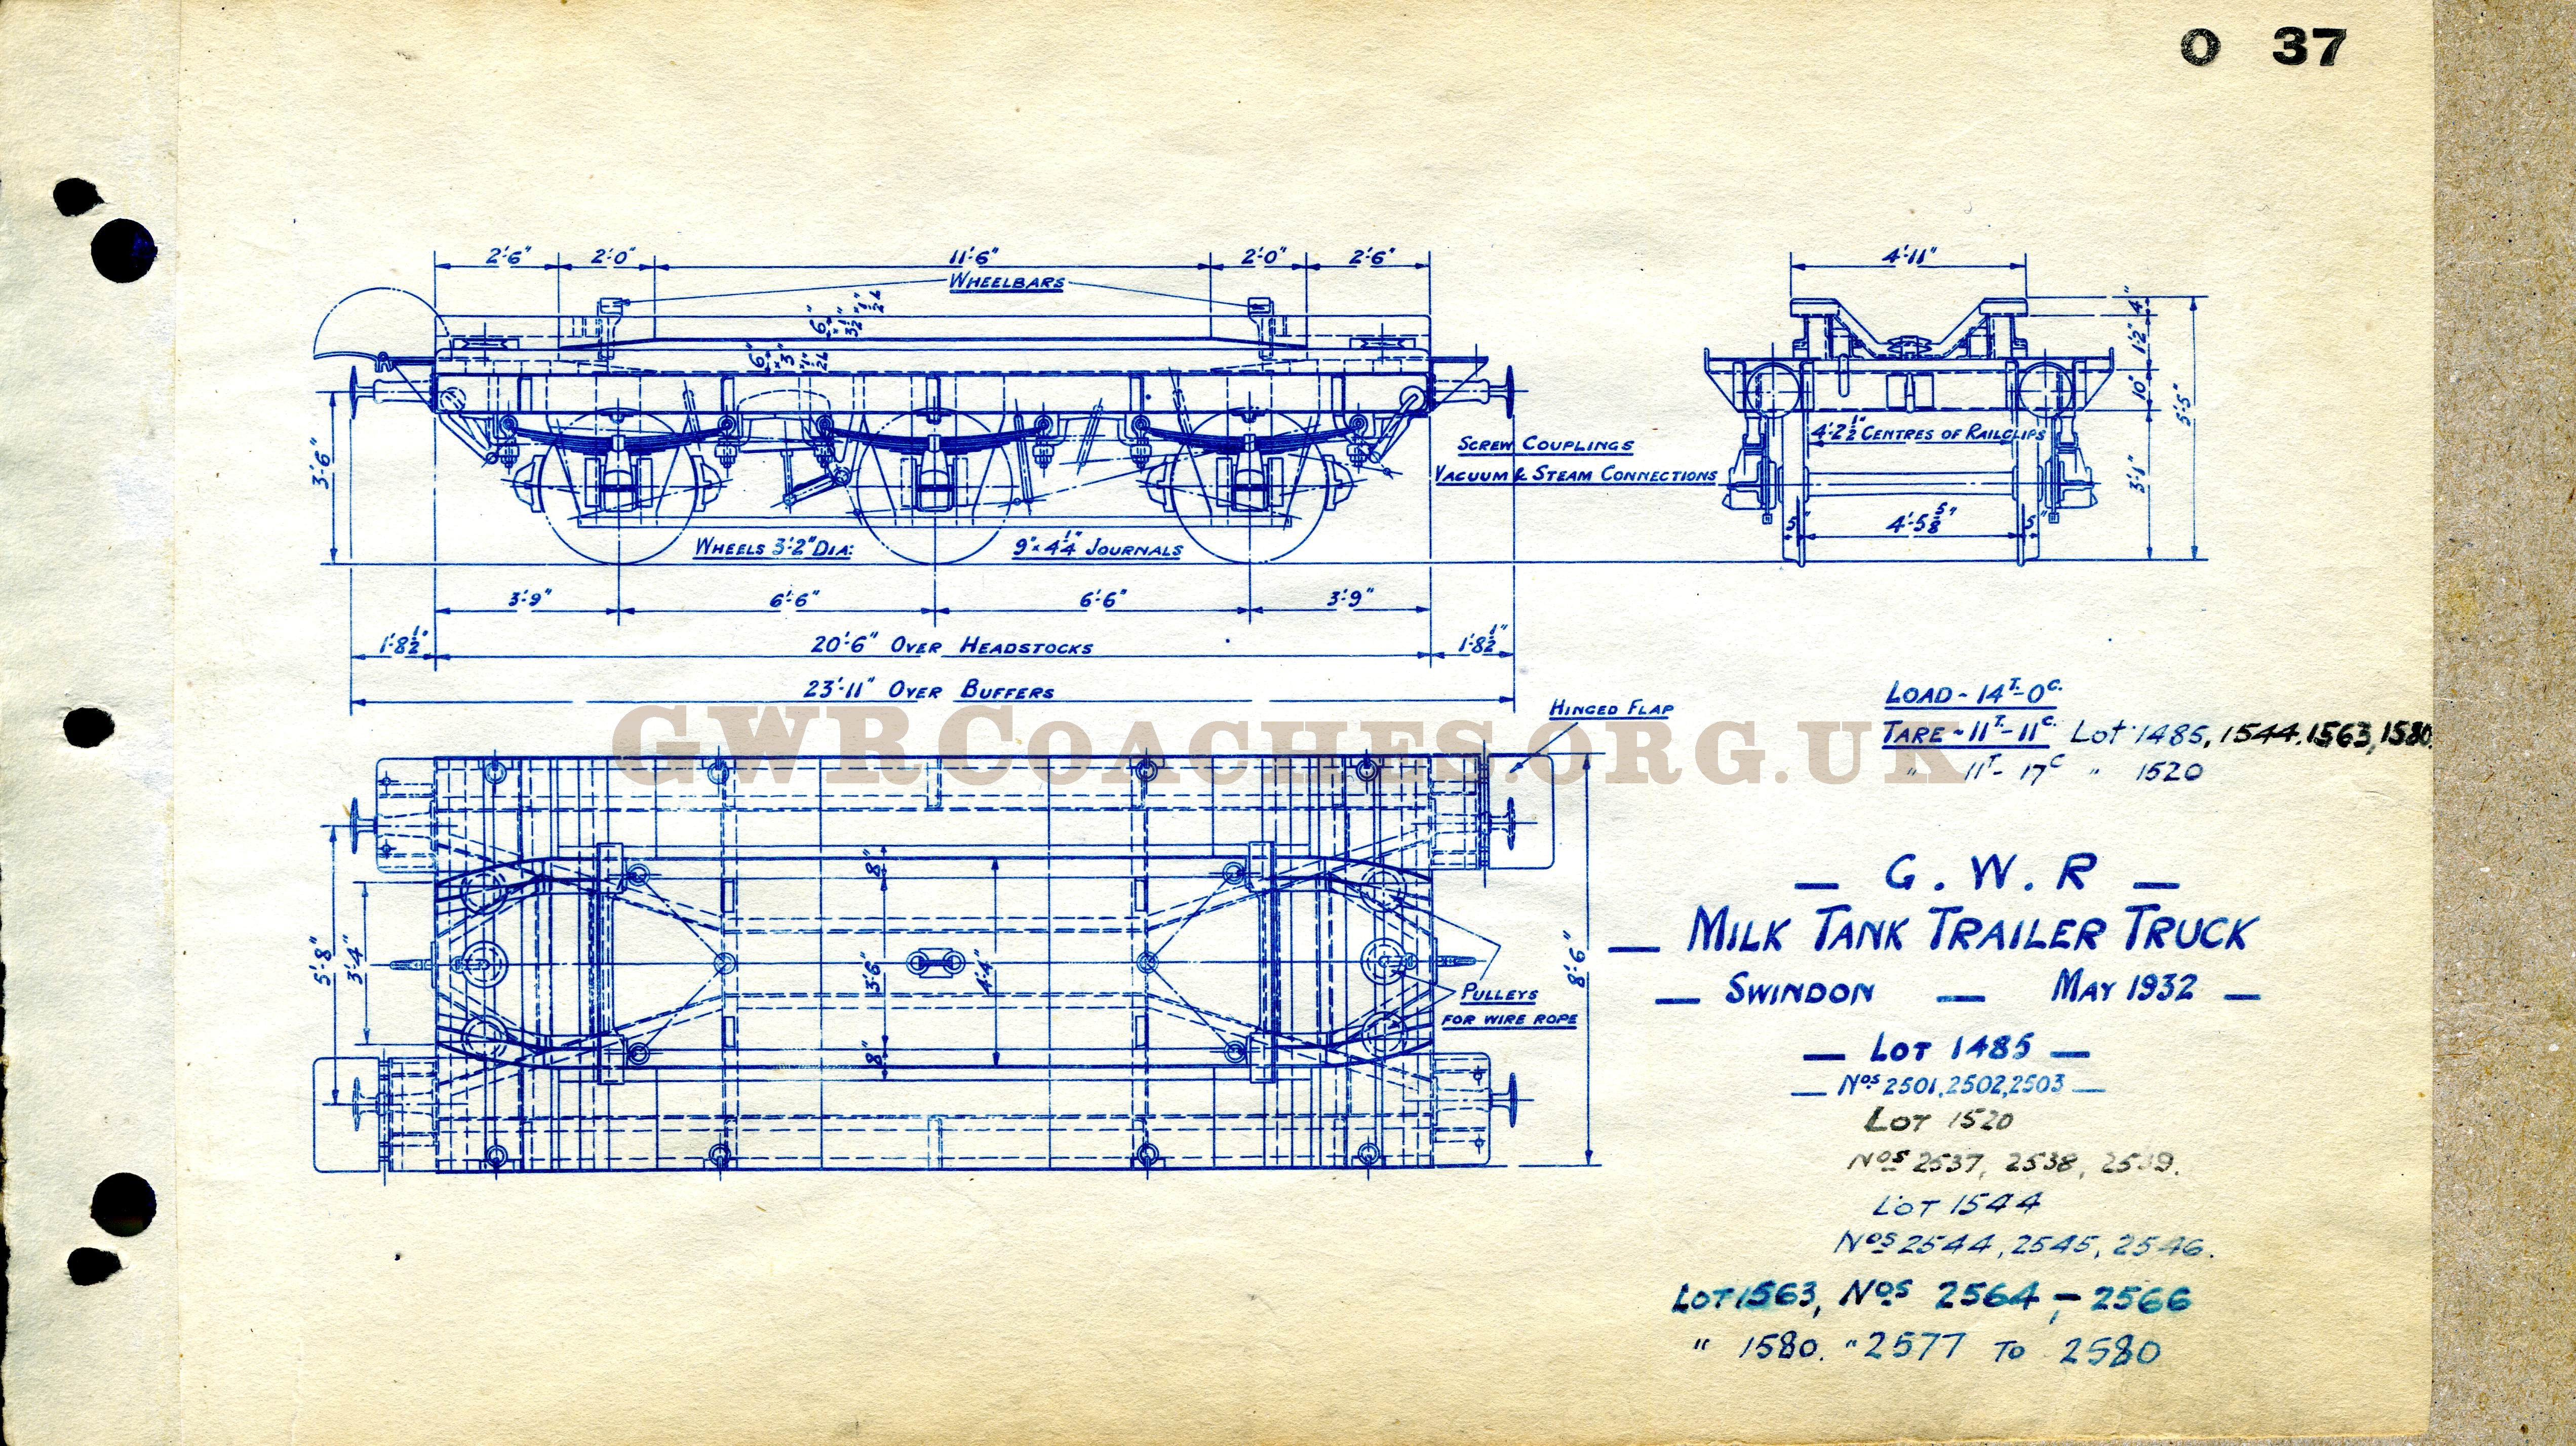 O 37
2'-6" 2'-0" 11'-6" 2'-0" 2'-6"
WHEELBARS
6" x 3½" x ½"
6" x 3" x ½"
3'-6"
WHEELS 3'-2" DIA: 9" x 4¼" JOURNALS
SCREW COUPLINGS
VACUUM & STEAM CONNECTIONS
3'-9" 6'-6" 6'-6" 3'-9"
1'-8½" 20'-6" OVER HEADSTOCKS 1'-8½"
23'-11" OVER BUFFERS
4'-11"
4"
1'-2"
10"
5'-5"
3'-1"
4'-2½" CENTRES OF RAILCLIPS
5" 4'-5⅝" 5"
GWRCOACHES.ORG.UK
HINGED FLAP
5'-8"
3'-4"
8"
3'-6"
4'-4"
8"
8'-6"
PULLEYS
FOR WIRE ROPE
LOAD - 14T.-0C.
TARE - 11T.-11C. Lot 1485, 1544, 1563, 1580.
" 11T-17C " 1520
— G. W. R —
— MILK TANK TRAILER TRUCK
— SWINDON — MAY 1932 —
— LOT 1485 —
— Nos 2501, 2502, 2503 —
LOT 1520
Nos 2537, 2538, 2539.
LOT 1544
Nos 2544, 2545, 2546.
LOT 1563, Nos 2564, - 2566
" 1580. " 2577 To 2580